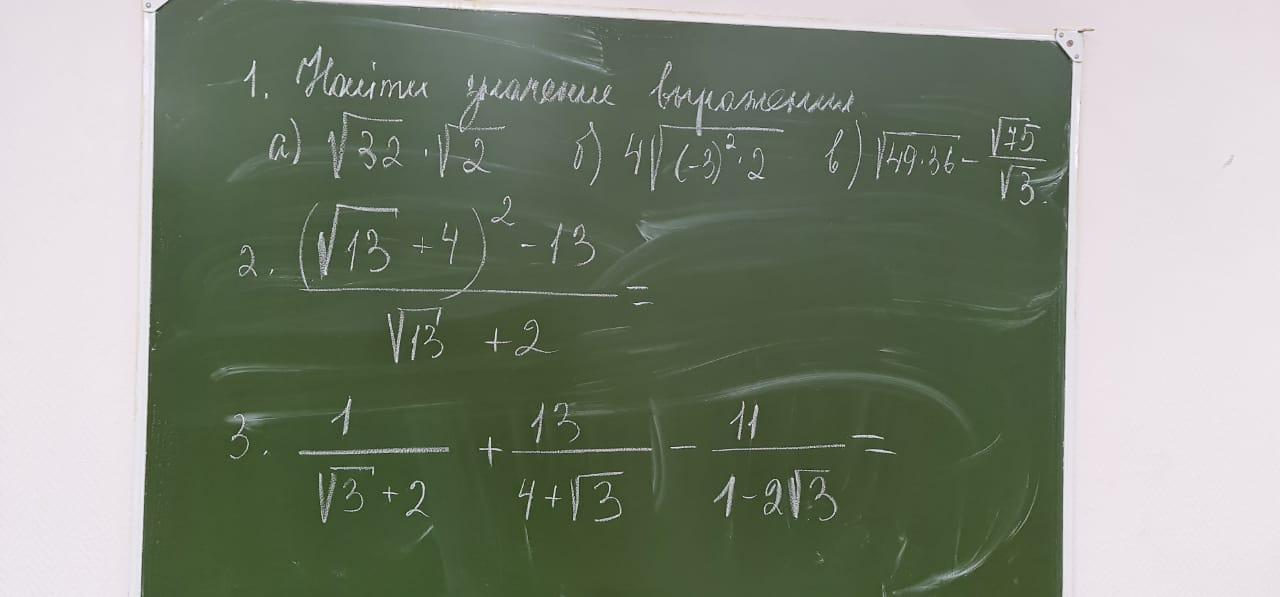 1. Найти значение выражения
а) √32 · √2 б) 4√((-3)² · 2) в) √(49·36) - √75/√3.
2. ((√13 + 4)² - 13)/(√13 + 2) =
3. 1/(√3 + 2) + 13/(4+√3) - 11/(1-2√3) =